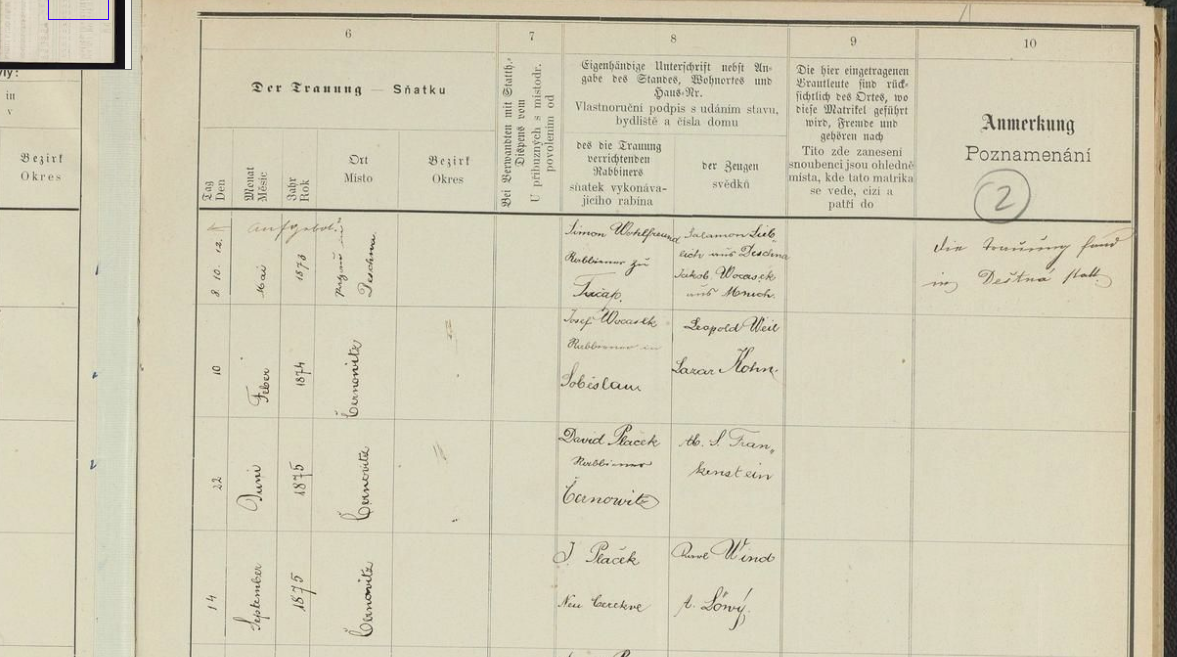 yly:
in
v
Bezirk
Okres
6
7
8
9
10
Der Trauung — Sňatku
Tag
Den
Monat
Měsíc
Jahr
Rok
Ort
Místo
Bezirk
Okres
Bei Verwandten mit Statth.-
Dispens vom
U příbuzných s místodr.
povolením od
Eigenhändige Unterschrift nebst An-
gabe des Standes, Wohnortes und
Haus-Nr.
Vlastnoruční podpis s udáním stavu,
bydliště a čísla domu
des die Trauung
verrichtenden
Rabbiners
sňatek vykonáva-
jícího rabína
der Zeugen
svědků
Die hier eingetragenen
Brautleute sind rück-
sichtlich des Ortes, wo
diese Matrikel geführt
wird, Fremde und
gehören nach
Tito zde zanesení
snoubenci jsou ohledně
místa, kde tato matrika
se vede, cizí a
patří do
Anmerkung
Poznamenání
2
8. 10. 12.
Mai
1873
Deschna
Simon Wohlfreund
Rabbiner zu
Salamon Lieb
lich aus Deschna
Jakob Wocasek
aus Mnich.
die Trauung fand
in Deštná statt
10
Feber
1874
Černowitz
Josef Wocasek
Rabbiner in
Sobieslau
Leopold Weil
Lazar Kohn.
22
Juni
1875
Černowitz
David Plaček
Rabbiner
Černowitz
Ab. S. Fran„
kenstein
14
September
1875
Černowitz
J. Plaček
Neu Cerekve
Karl Wind
A. Löwy.